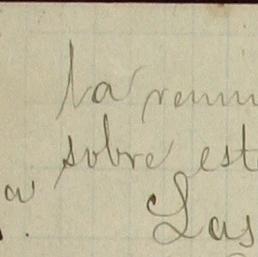 la reun
sobre est
a Las